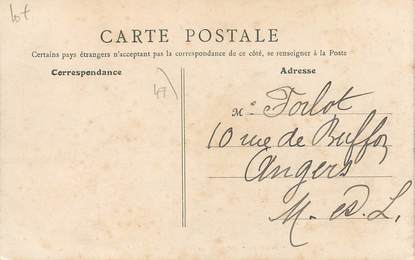 lot
CARTE POSTALE
Certains pays étrangers n'acceptant pas la correspondance de ce côté, se renseigner à la Poste
Correspondance
Adresse
47
Me Forlot
10 rue de Buffon
Angers
M. et L.